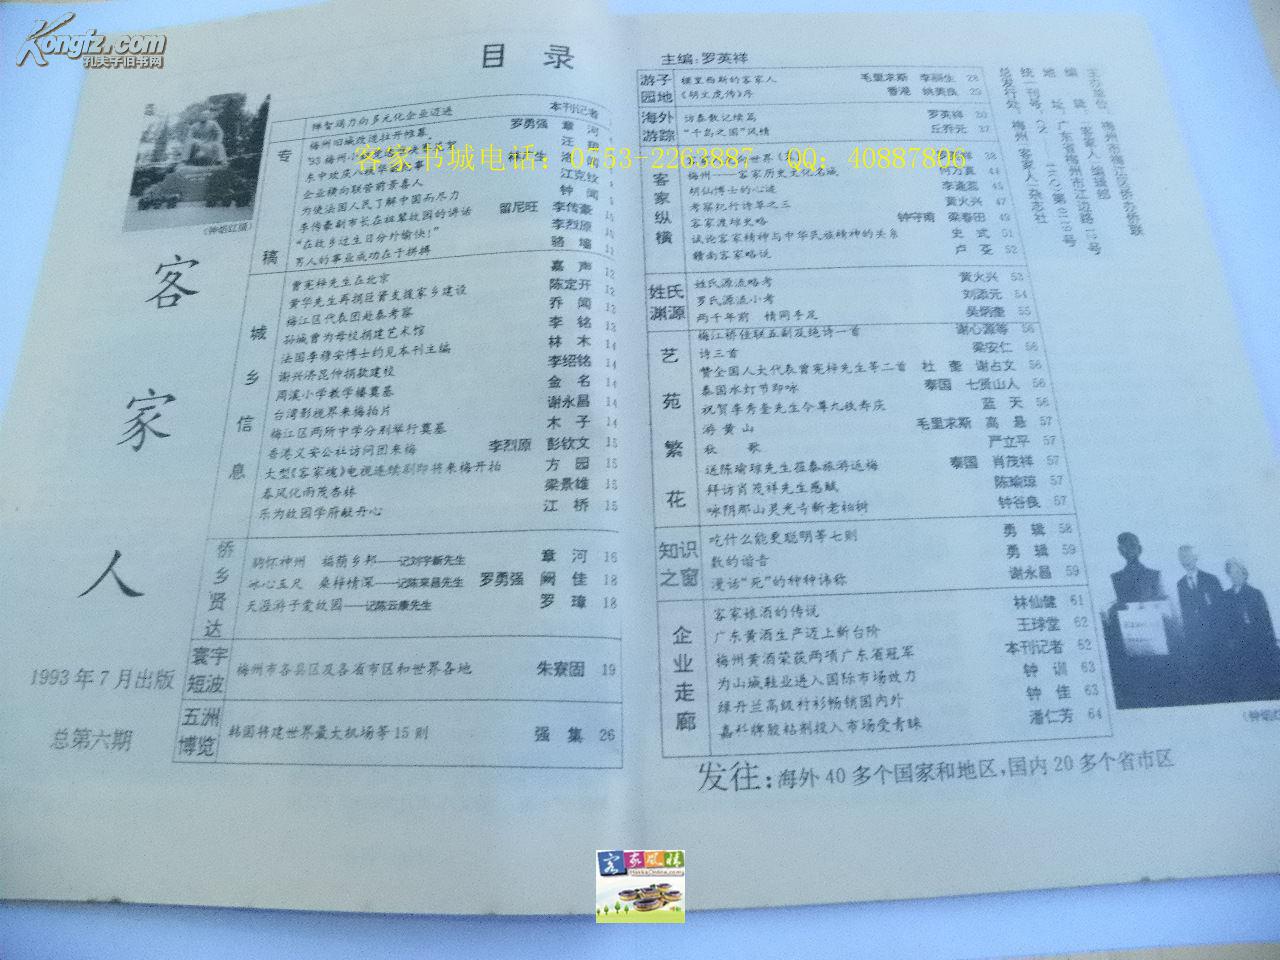 Kongfz.com
孔夫子旧书网
目 录
(钟焰红摄)
客家人
1993年7月出版
总第六期
专稿
本刊记者
梅州旧城改造拉开帷幕 罗勇强 章 河
企业横向联营前景喜人
为使法国人民了解中国而尽力 钟 闻
李传豪副市长在祖辈故园的讲话 留尼旺 李传豪
“在故乡过生日分外愉快!” 李烈原
男人的事业成功在于拼搏 骆 墙 11
客家书城电话:0753-2262887 QQ:40887806
城乡信息
曾宪梓先生在北京 嘉 声 12
黄华先生再捐巨资支援家乡建设 陈定开 12
梅江区代表团赴泰考察 乔 闻 13
孙城曾为母校捐建艺术馆 李 铭 13
法国李穆安博士约见本刊主编 林 木 14
谢兴济昆仲捐款建校 李绍铭 14
周溪小学教学楼奠基 金 名 14
台湾影视界来梅拍片 谢永昌 14
梅江区两所中学分别举行奠基 木 子 14
香港义安公社访问团来梅 李烈原 彭钦文 15
大型《客家魂》电视连续剧即将来梅开拍 方 园 15
春风化雨茂杏林 梁景雄 15
乐为故园学府献丹心 江 桥 15
侨乡贤达
胸怀神州 福荫乡邦——记刘宇新先生 章 河 16
冰心玉尺 桑梓情深——记陈来昌先生 罗勇强 阙 佳 18
天涯游子爱故园——记陈云康先生 罗 璋 18
寰宇短波
梅州市各县区及各省市区和世界各地 朱寮固 19
五洲博览
韩国将建世界最大机场等15则 强 集 26
主编:罗英祥
游子园地
模里西斯的客家人 毛里求斯 李丽生 28
《胡文虎传》序 香港 姚美良 29
海外游踪
访泰散记续篇 罗英祥 30
“千岛之国”风情 丘乔元 37
客家纵横
梅州——客家历史文化名城 何万真 44
胡仙博士的心迹 李逢蕊 45
考察纪行诗草之三 黄火兴 47
客家渡琼史略 钟守甫 梁春田 49
试论客家精神与中华民族精神的关系 史 式 51
赣南客家略说 52
姓氏渊源
姓氏源流略考 黄火兴 53
罗氏源流小考 刘添元 54
两千年前 情同手足 吴炳奎 55
艺苑繁花
梅江桥佳联五副及绝诗一首 谢心源等 56
诗三首 梁安仁 56
赞全国人大代表曾宪梓先生等二首 杜 奎 谢占文 56
泰国水灯节即咏 泰国 七贤山人 56
祝贺李秀奎先生令尊九秩寿庆 蓝 天 56
游黄山 毛里求斯 高 悬 57
秋 歌 严立平 57
送陈瑜琼先生莅泰旅游返梅 泰国 肖茂祥 57
拜访肖茂祥先生感赋 陈瑜琼 57
咏阴那山灵光寺断老柏树 钟谷良 57
知识之窗
吃什么能更聪明等七则 勇 辑 58
数的谐音 勇 辑 59
漫话“死”的种种讳称 谢永昌 59
企业走廊
客家娘酒的传说 林仙健 61
广东黄酒生产迈上新台阶 王球堂 62
梅州黄酒荣获两项广东省冠军 本刊记者 62
为山城鞋业进入国际市场效力 钟 训 63
绿丹兰高级衬衫畅销国内外 钟 佳 63
嘉利牌胶粘剂投入市场受青睐 潘仁芳 64
发往:海外40多个国家和地区,国内20多个省市区
编 辑:《客家人》编辑部
地 址:广东省梅州市江边路12号
总发行处:梅州《客家人》杂志社
客家风情
HakkaOnline.com